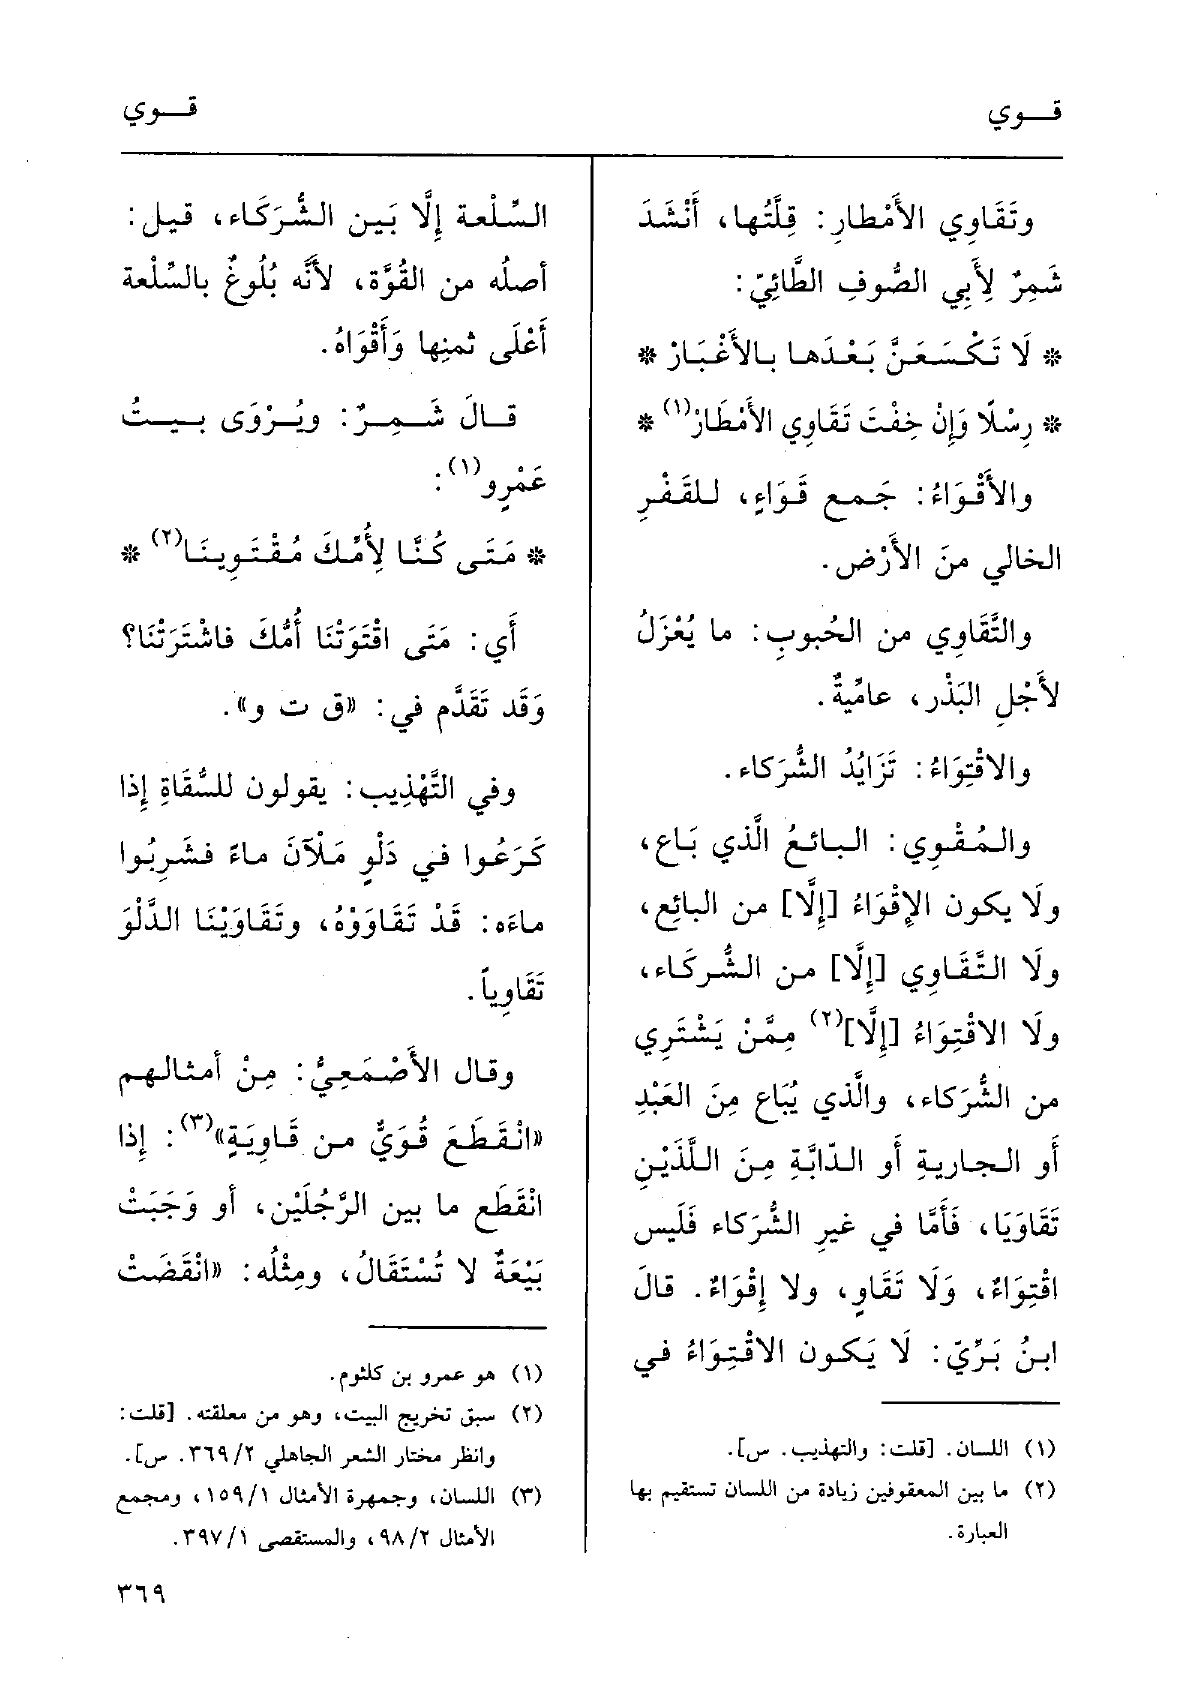 قـــوي
قـــوي
وتَقَاوِي الأَمْطارِ: قِلَّتُها، أَنْشَدَ
شَمِرٌ لِأَبِي الصُّوفِ الطَّائِيّ:
* لَا تَكْسَعَنَّ بَعْدَها بالأَغْبَارْ *
* رِسْلًا وَإِنْ خِفْتَ تَقَاوِي الأَمْطارْ(١) *
والأَقْوَاءُ: جَمع قَوَاءٍ، للقَفْرِ
الخالي منَ الأَرْض.
والتَّقَاوِي من الحُبوبِ: ما يُعْزَلُ
لأَجْلِ البَذْر، عامِّيةٌ.
والاقْتِوَاءُ: تَزَايُدُ الشُّرَكاء.
والمُقْوِي: البائعُ الَّذي بَاع،
ولَا يكون الإِقْوَاءُ [إلَّا] من البائِع،
ولَا التَّقَاوِي [إلَّا] من الشُّركَاء،
ولَا الاقْتِوَاءُ [إلَّا](٢) مِمَّنْ يَشْتَرِي
من الشُّركاء، والَّذي يُبَاع مِنَ العَبْدِ
أو الجاريةِ أو الدّابَّةِ مِنَ اللَّذَيْنِ
تَقَاوَيَا، فَأَمَّا في غيرِ الشُّرَكاء فَلَيس
اقْتِوَاءٌ، وَلَا تَقَاوٍ، ولا إِقْوَاءٌ. قالَ
ابنُ بَرِّيّ: لَا يَكون الاقْتِوَاءُ في
(١) اللسان. [قلت: والتهذيب. س].
(٢) ما بين المعقوفين زيادة من اللسان تستقيم بها
العبارة.
السِّلْعة إِلَّا بَين الشُّرَكَاء، قيل:
أصلُه من القُوَّة، لأنَّه بُلُوغٌ بالسِّلْعة
أَعْلَى ثمنِها وَأَقْوَاهُ.
قالَ شَمِرٌ: ويُرْوَى بيتُ
عَمْرٍو(١):
* مَتَى كُنَّا لِأُمِّكَ مُقْتَوِينَا(٢) *
أَي: مَتَى اقْتَوَتْنَا أُمُّكَ فاشْتَرَتْنَا؟
وَقَد تَقَدَّم في: «ق ت و».
وفي التَّهْذِيب: يقولون للسُّقَاةِ إِذَا
كَرَعُوا في دَلْوٍ مَلْآنَ ماءً فشَرِبُوا
ماءَه: قَدْ تَقَاوَوْهُ، وتَقَاوَيْنَا الدَّلْوَ
تَقَاوِياً.
وقال الأَصْمَعِيُّ: مِنْ أمثالهم
«انْقَطَعَ قُوَيٌّ من قَاوِيَةٍ»(٣): إِذَا
انْقَطَع ما بين الرَّجُلَيْن، أو وَجَبَتْ
بَيْعَةٌ لا تُسْتَقَالُ، ومِثْلُه: «انْقَضَتْ
(١) هو عمرو بن كلثوم.
(٢) سبق تخريج البيت، وهو من معلقته. [قلت:
وانظر مختار الشعر الجاهلي ٢/ ٣٦٩. س].
(٣) اللسان، وجمهرة الأمثال ١/ ١٥٩، ومجمع
الأمثال ٢/ ٩٨، والمستقصى ١/ ٣٩٧.
٣٦٩